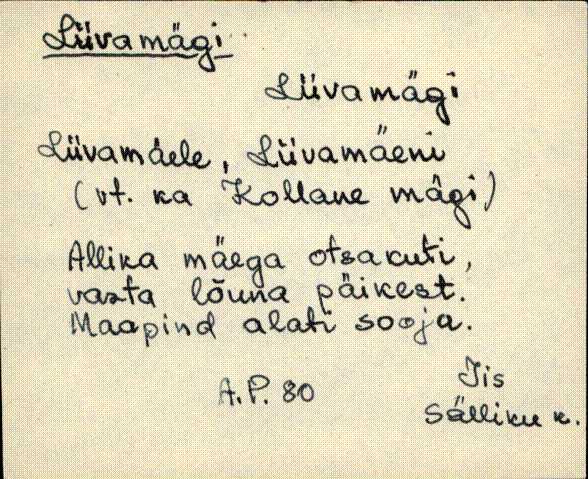 Liivamägi
Liivamägi
Liivamäele, Liivamäeni
(vt. ka Kollane mägi)
Allika mäega otsakuti,
vasta lõuna päikest.
Maapind alati sooja.
A.P. 80
Iis
Sälliku k.